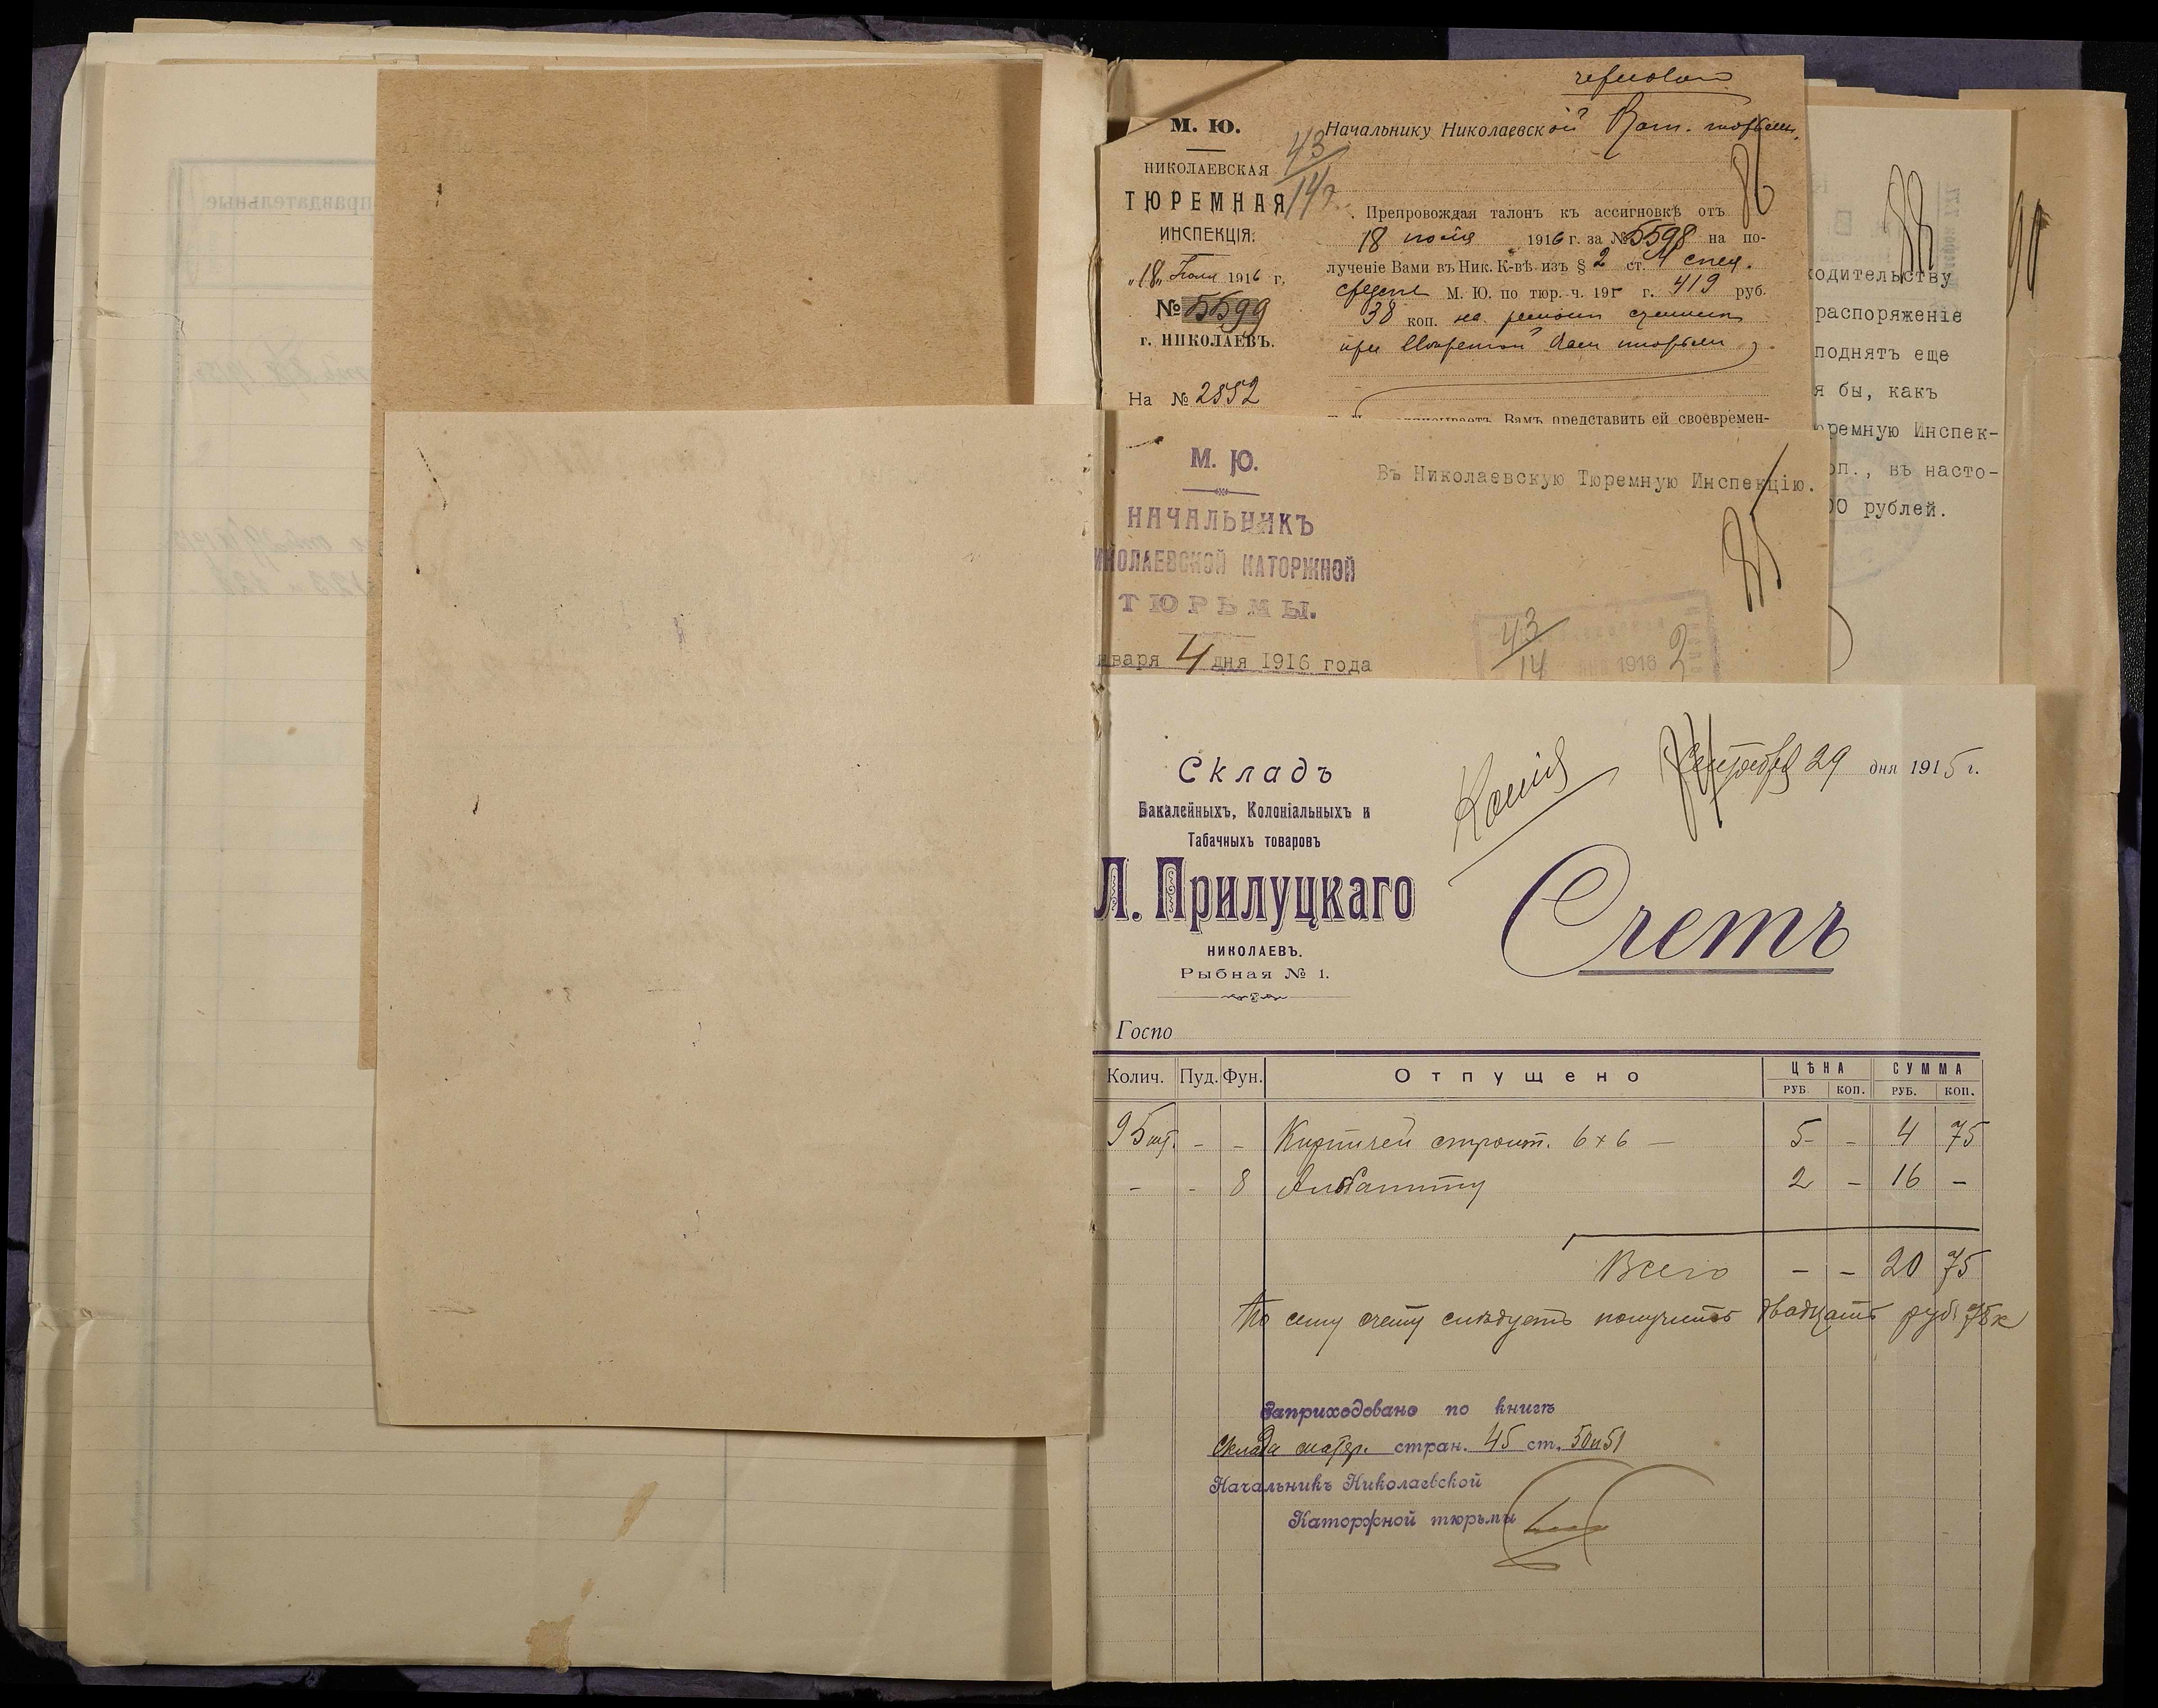 М. Ю.
НИКОЛАЕВСКАЯ
ТЮРЕМНАЯ
ИНСПЕКЦІЯ.
„18„ Іюля 1916 г.
№ 5599
г. НИКОЛАЕВЪ.
На № 2552
43/14
Начальнику Николаевской Кат. тюрьмы.
86
Препровождая талонъ къ ассигновкѣ отъ
18 іюля 1916 г. за № 5598 на по-
лученіе Вами въ Ник. К-вѣ изъ § 2 ст. 4 спец.
средств М. Ю. по тюр. ч. 191 г. 419 руб.
38 коп. на ремонт
при кат тюрьмы
Вамъ представить ей своевремен-
88
90
водительству
распоряженіе
поднятъ еще
я бы, какъ
юремную Инспек-
оп., въ насто-
00 рублей.
М. Ю.
НАЧАЛЬНИКЪ
НИКОЛАЕВСКОЙ КАТОРЖНОЙ
ТЮРЬМЫ.
нваря 4 дня 1916 года
Въ Николаевскую Тюремную Инспекцію.
85
43/14
1916
2
Складъ
Бакалейныхъ, Колоніальныхъ и
Табачныхъ товаровъ
Л. Прилуцкаго
НИКОЛАЕВЪ.
Рыбная № 1.
Копія
84
Сентября 29 дня 1915 г.
Счетъ
Госпо
Колич. Пуд. Фун. Отпущено ЦѢНА СУММА
РУБ. КОП. РУБ. КОП.
95 шт. - - Кирпичей строит. 6 x 6 — 5 - - 4 75
- - 8 Алебастру 2 - 16 -
Всего - - 20 75
По сему счету слѣдуетъ получить двадцать руб. 75 к
Заприходовано по книгѣ
Склада матер. стран. 45 ст. 50 и 51
Начальникъ Николаевской
Каторжной тюрьмы
правдательные